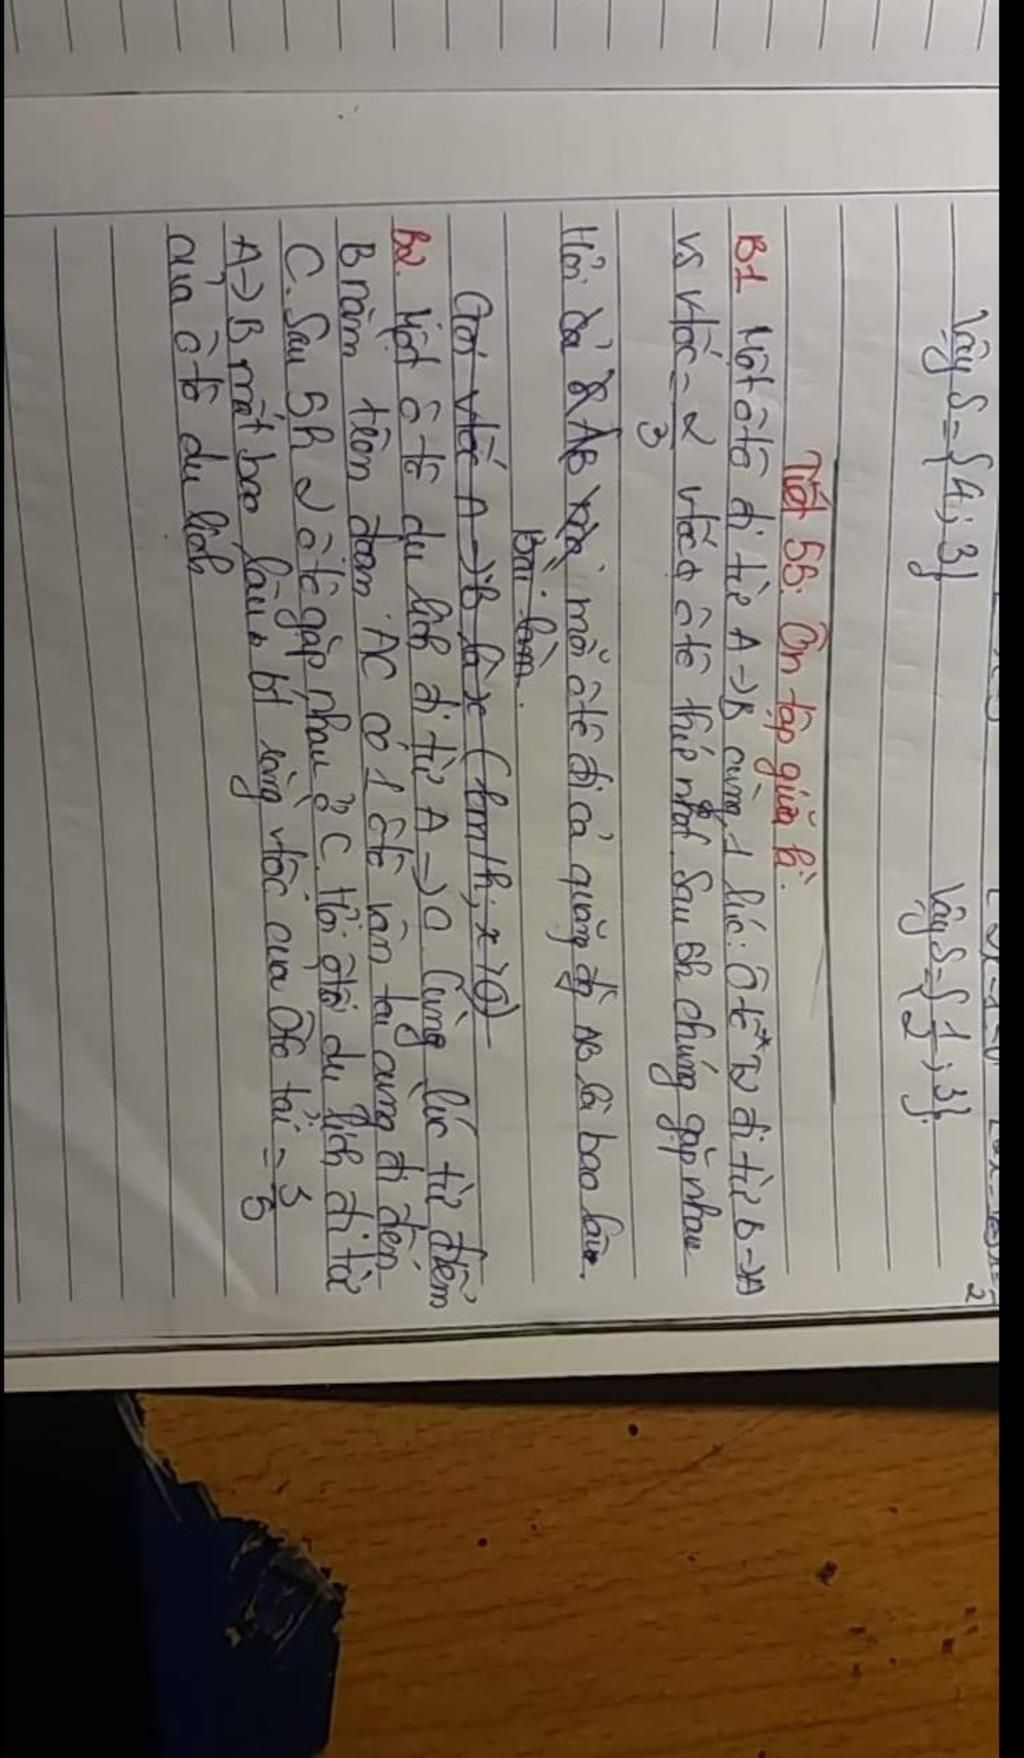 Vậy S = {4; 3}
Vậy S = {1/2; 3}.
Tiết 58: Ôn tập giữa kì.
B1 Một ôtô đi từ A → B cùng 1 lúc. Ô tô T2 đi từ B → A
vs vtốc = 2/3 vtốc ôtô thứ nhất. Sau 5h chúng gặp nhau
Hỏi mỗi ôtô đi cả quãng đg AB là bao lâu.
Bài làm.
Gọi vtốc A → B là x (km/h; x > 0)
B2. Một ô tô du lịch đi từ A → C Cùng lúc từ điểm
B nằm trên đoạn AC có 1 ôtô vận tải cùng đi đến
C. Sau 5h 2 ôtô gặp nhau ở C. Hỏi ôtô du lịch đi từ
A → B mất bao lâu bt rằng vtốc của Ôtô tải = 3/5
của ô tô du lịch